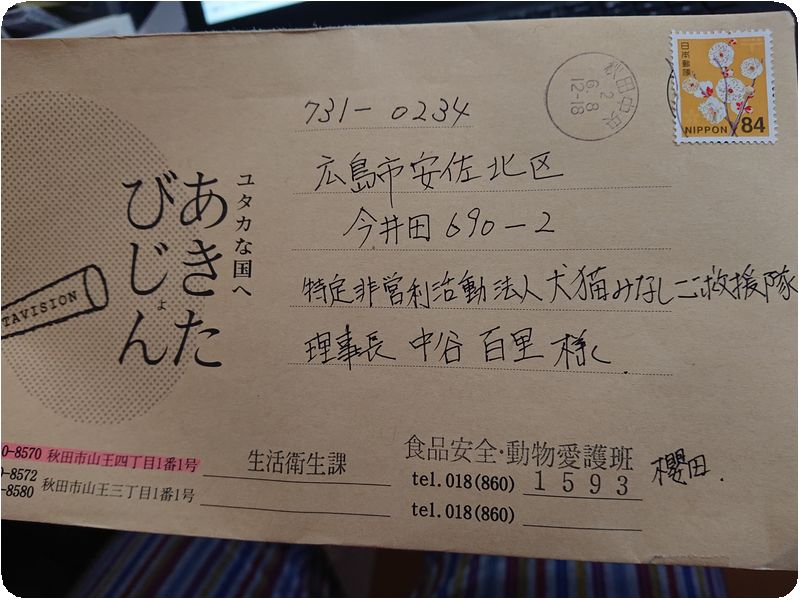 日本郵便
NIPPON 84
秋田中央
2
6.8
12-18
731-0234
広島市安佐北区
今井田690-2
特定非営利活動法人犬猫みなしご救援隊
理事長 中谷 百里 様
ユタカな国へ
あきた
びじょん
TAVISION
0-8570 秋田市山王四丁目1番1号
0-8572
-8580 秋田市山王三丁目1番1号
生活衛生課
食品安全・動物愛護班
tel.018(860) 1593
櫻田.
tel.018(860)